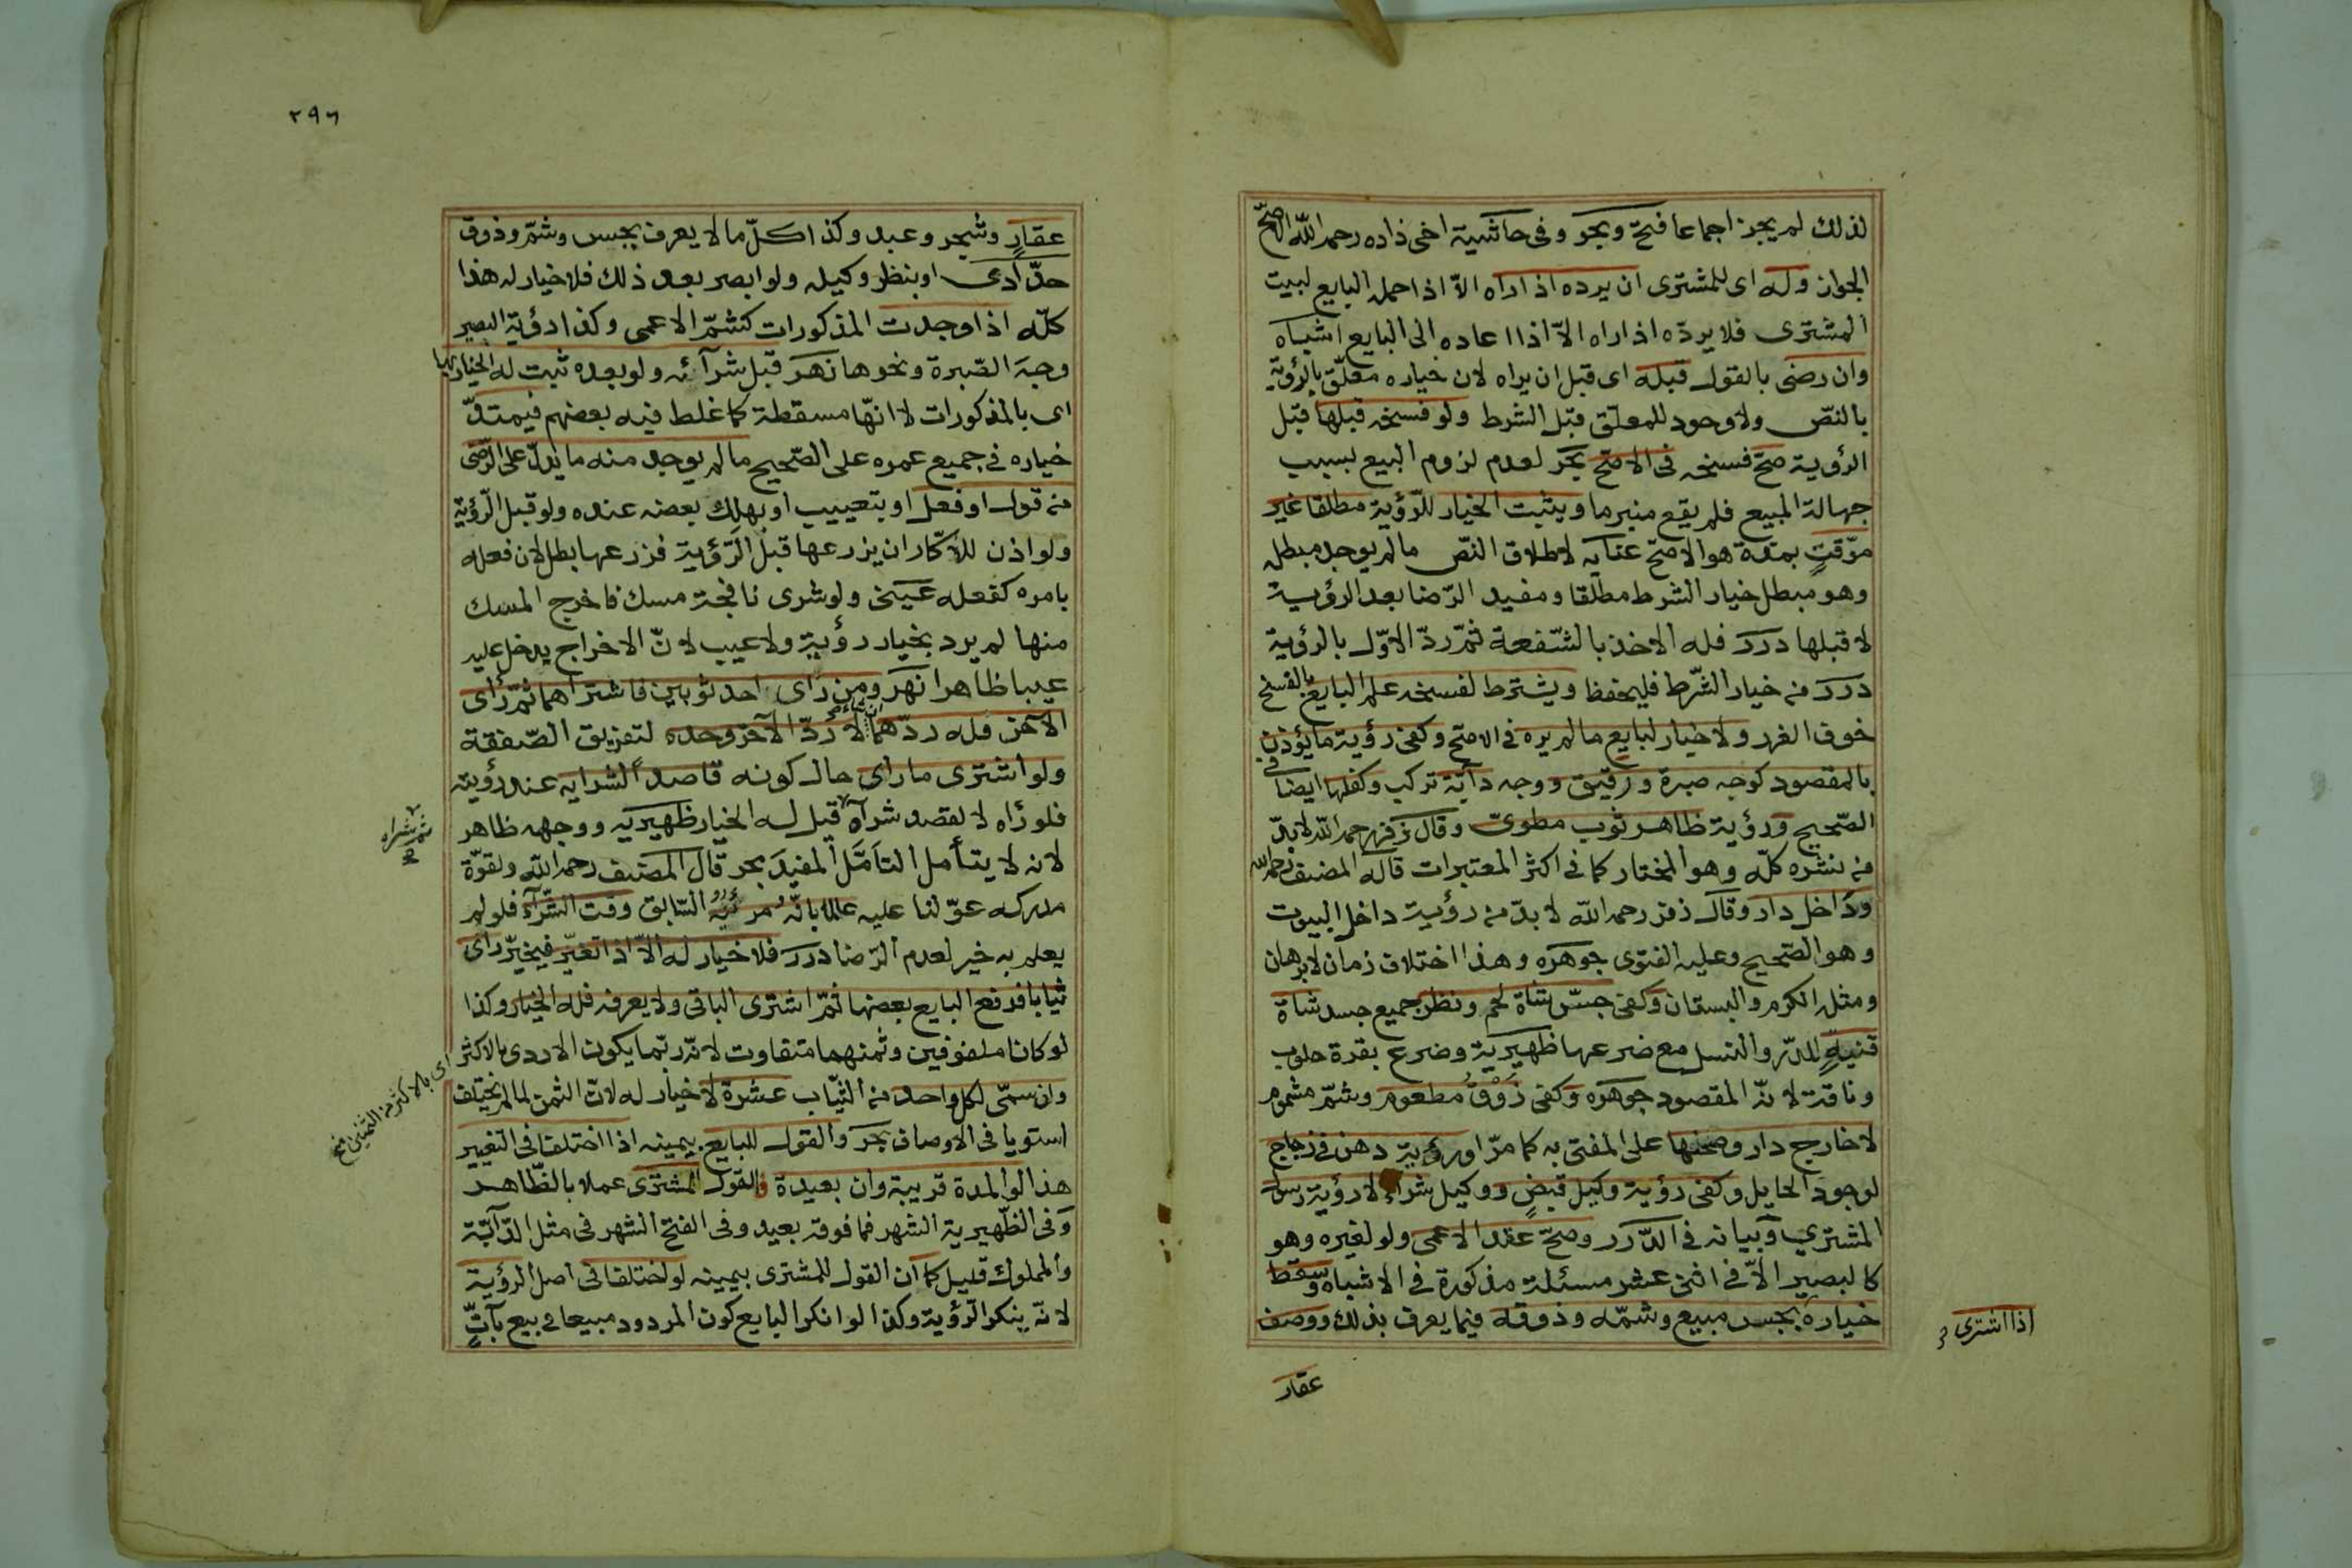 لذلك لم يجز اجماعا فتح وبحر وفى حاشية اخى زاده رحمه الله الاصح
الجواز وله اى للمشترى ان يرده اذا راه الا اذا حمله البايع لبيت
المشترى فلا يرده اذا راه الا اذا اعاده الى البايع اشباه
وان رضى بالقول قبله اى قبل ان يراه لان خياره معلق بالرؤية
بالنص ولا وجود للمعلق قبل الشرط ولو فسخه قبلها قبل
الرؤية صح فسخه فى الاصح بحر لعدم لزوم البيع بسبب
جهالة المبيع فلم يقع منبرما ويثبت الخيار للرؤية مطلقا غير
موقت بمدة هو الاصح عنايه لاطلاق النص ما لم يوجد مبطله
وهو مبطل خيار الشرط مطلقا ومفيد الرضا بعد الرؤية
لا قبلها درر فله الاخذ بالشفعة ثم رد الاول بالرؤية
درر من خيار الشرط فليحفظ ويشترط لفسخه علم البايع بالفسخ
خوف الغرر ولا خيار لبايع ما لم يره فى الاصح وكفى رؤية ما يؤذن
بالمقصود كوجه صبرة ورقيق ووجه دابة تركب وكفلها ايضا فى
الصحيح ورؤية ظاهر ثوب مطوى وقال زفر رحمه الله لا بد
من نشره كله وهو المختار كما فى اكثر المعتبرات قاله المصنف رحمه الله
وداخل دار وقال زفر رحمه الله لا بد من رؤية داخل البيوت
وهو الصحيح وعليه الفتوى جوهره وهذا اختلاف زمان لا برهان
ومثله الكرم والبستان وكفى جس شاة لحم ونظر جميع جسد شاة
قنية للدر والنسل مع ضرعها ظهيرية وضرع بقرة حلوب
وناقة لانه المقصود جوهره وكفى ذوق مطعوم وشم مشموم
لا خارج دار وصحنها على المفتى به كما مر او رؤية دهن فى زجاج
لوجود الحايل وكفى رؤية وكيل قبض ووكيل شراء لا رؤية رسول
المشتري وبيانه فى الدرر وصح عقد الاعمى ولو لغيره وهو
كالبصير الا فى اثنى عشر مسئلة مذكورة فى الاشباه وسقط
خياره بجس مبيع وشمه وذوقه فيما يعرف بذلك ووصف
اذا اشترى
عقار
٢٩٦
عقار وشجر وعبد وكذا كل ما لا يعرف بجس وشم وذوق
حدادى او بنظر وكيله ولو ابصر بعد ذلك فلا خيار له هذا
كله اذا وجدت المذكورات كشم الاعمى وكذا رؤية البصير
وجه الصبرة ونحوها نهر قبل شرائه ولو بعده ثبت له الخيار بها
اى بالمذكورات لا انها مسقطة كما غلط فيه بعضهم فيمتد
خياره فى جميع عمره على الصحيح ما لم يوجد منه ما يدل على الرضى
من قول او فعل او بتعييب او بهلك بعضه عنده ولو قبل الرؤية
ولو اذن للاكار ان يزرعها قبل الرؤية فزرعها بطل لان فعله
بامره كفعله عينى ولو شرى نافجة مسك فاخرج المسك
منها لم يرد بخيار رؤية ولا عيب لان الاخراج يدخل عليه
عيبا ظاهرا نهر ومن راى احد ثوبين فاشتراهما ثم راى
الآخر فله ردهما ان شاء لا رد الآخر وحده لتفريق الصفقة
ولو اشترى ما راى حال كونه قاصدا لشرايه عند رؤيته
فلو رآه لا لقصد شرآء قبل له الخيار ظهيريه ووجهه ظاهر
ثم شراه
لانه لا يتأمل التأمل المفيد بحر قال المصنف رحمه الله ولقوة
مدركه عولنا عليه عالما بانه مرئيه السابق وقت الشرآء فلو لم
يعلم به خير لعدم الرضا درر فلا خيار له الا اذا تغير فيخير راى
ثيابا فرفع البايع بعضها ثم اشترى الباقى ولا يعرفه فله الخيار وكذا
لو كانا ملفوفين وثمنهما متفاوت لانه ربما يكون الاردى بالاكثر
اى بالاكثر من الثمنين منح
وان سمى لكل واحد من الثياب عشرة لا خيار له لان الثمن لما لم يختلف
استويا فى الاوصاف بحر والقول للبايع بيمينه اذا اختلفا فى التغيير
هذا لو المدة قريبة وان بعيدة فالقول للمشترى عملا بالظاهر
وفى الظهيرية الشهر فما فوقه بعيد وفى الفتح الشهر فى مثل الدآبة
والمملوك قليل كما ان القول للمشترى بيمينه لو اختلفا فى اصل الرؤية
لانه ينكر الرؤية وكذا لو انكر البايع كون المردود مبيعا فى بيع بات